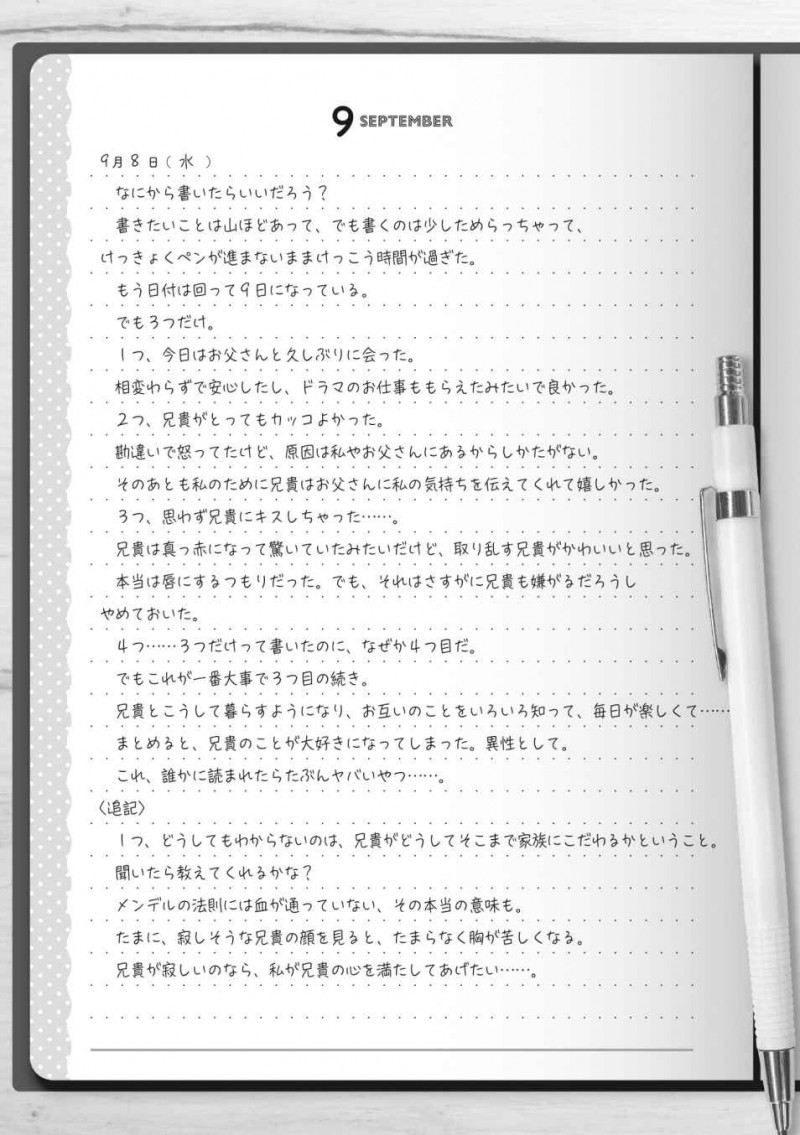 9 SEPTEMBER
9月8日(水)
なにから書いたらいいだろう?
書きたいことは山ほどあって、でも書くのは少しためらっちゃって、
けっきょくペンが進まないままけっこう時間が過ぎた。
もう日付は回って9日になっている。
でも3つだけ。
1つ、今日はお父さんと久しぶりに会った。
相変わらずで安心したし、ドラマのお仕事ももらえたみたいで良かった。
2つ、兄貴がとってもカッコよかった。
勘違いで怒ってたけど、原因は私やお父さんにあるからしかたがない。
そのあとも私のために兄貴はお父さんに私の気持ちを伝えてくれて嬉しかった。
3つ、思わず兄貴にキスしちゃった……。
兄貴は真っ赤になって驚いていたみたいだけど、取り乱す兄貴がかわいいと思った。
本当は唇にするつもりだった。でも、それはさすがに兄貴も嫌がるだろうし
やめておいた。
4つ……3つだけって書いたのに、なぜか4つ目だ。
でもこれが一番大事で3つ目の続き。
兄貴とこうして暮らすようになり、お互いのことをいろいろ知って、毎日が楽しくて……
まとめると、兄貴のことが大好きになってしまった。異性として。
これ、誰かに読まれたらたぶんヤバいやつ……。
〈追記〉
1つ、どうしてもわからないのは、兄貴がどうしてそこまで家族にこだわるかということ。
聞いたら教えてくれるかな?
メンデルの法則には血が通っていない、その本当の意味も。
たまに、寂しそうな兄貴の顔を見ると、たまらなく胸が苦しくなる。
兄貴が寂しいのなら、私が兄貴の心を満たしてあげたい……。